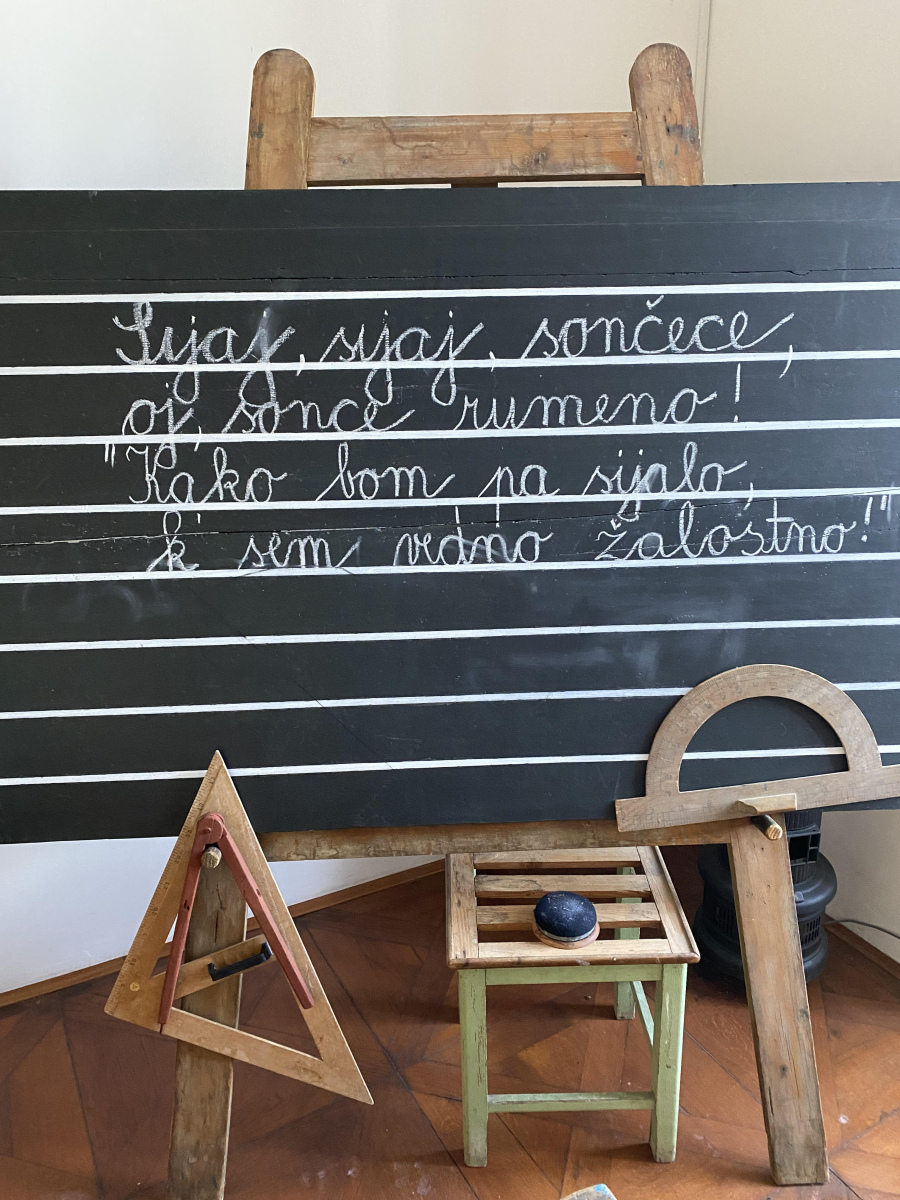 Sijaj, sijaj, sončece,
oj, sonce rumeno!
"Kako bom pa sijalo,
k' sem vedno žalostno!"